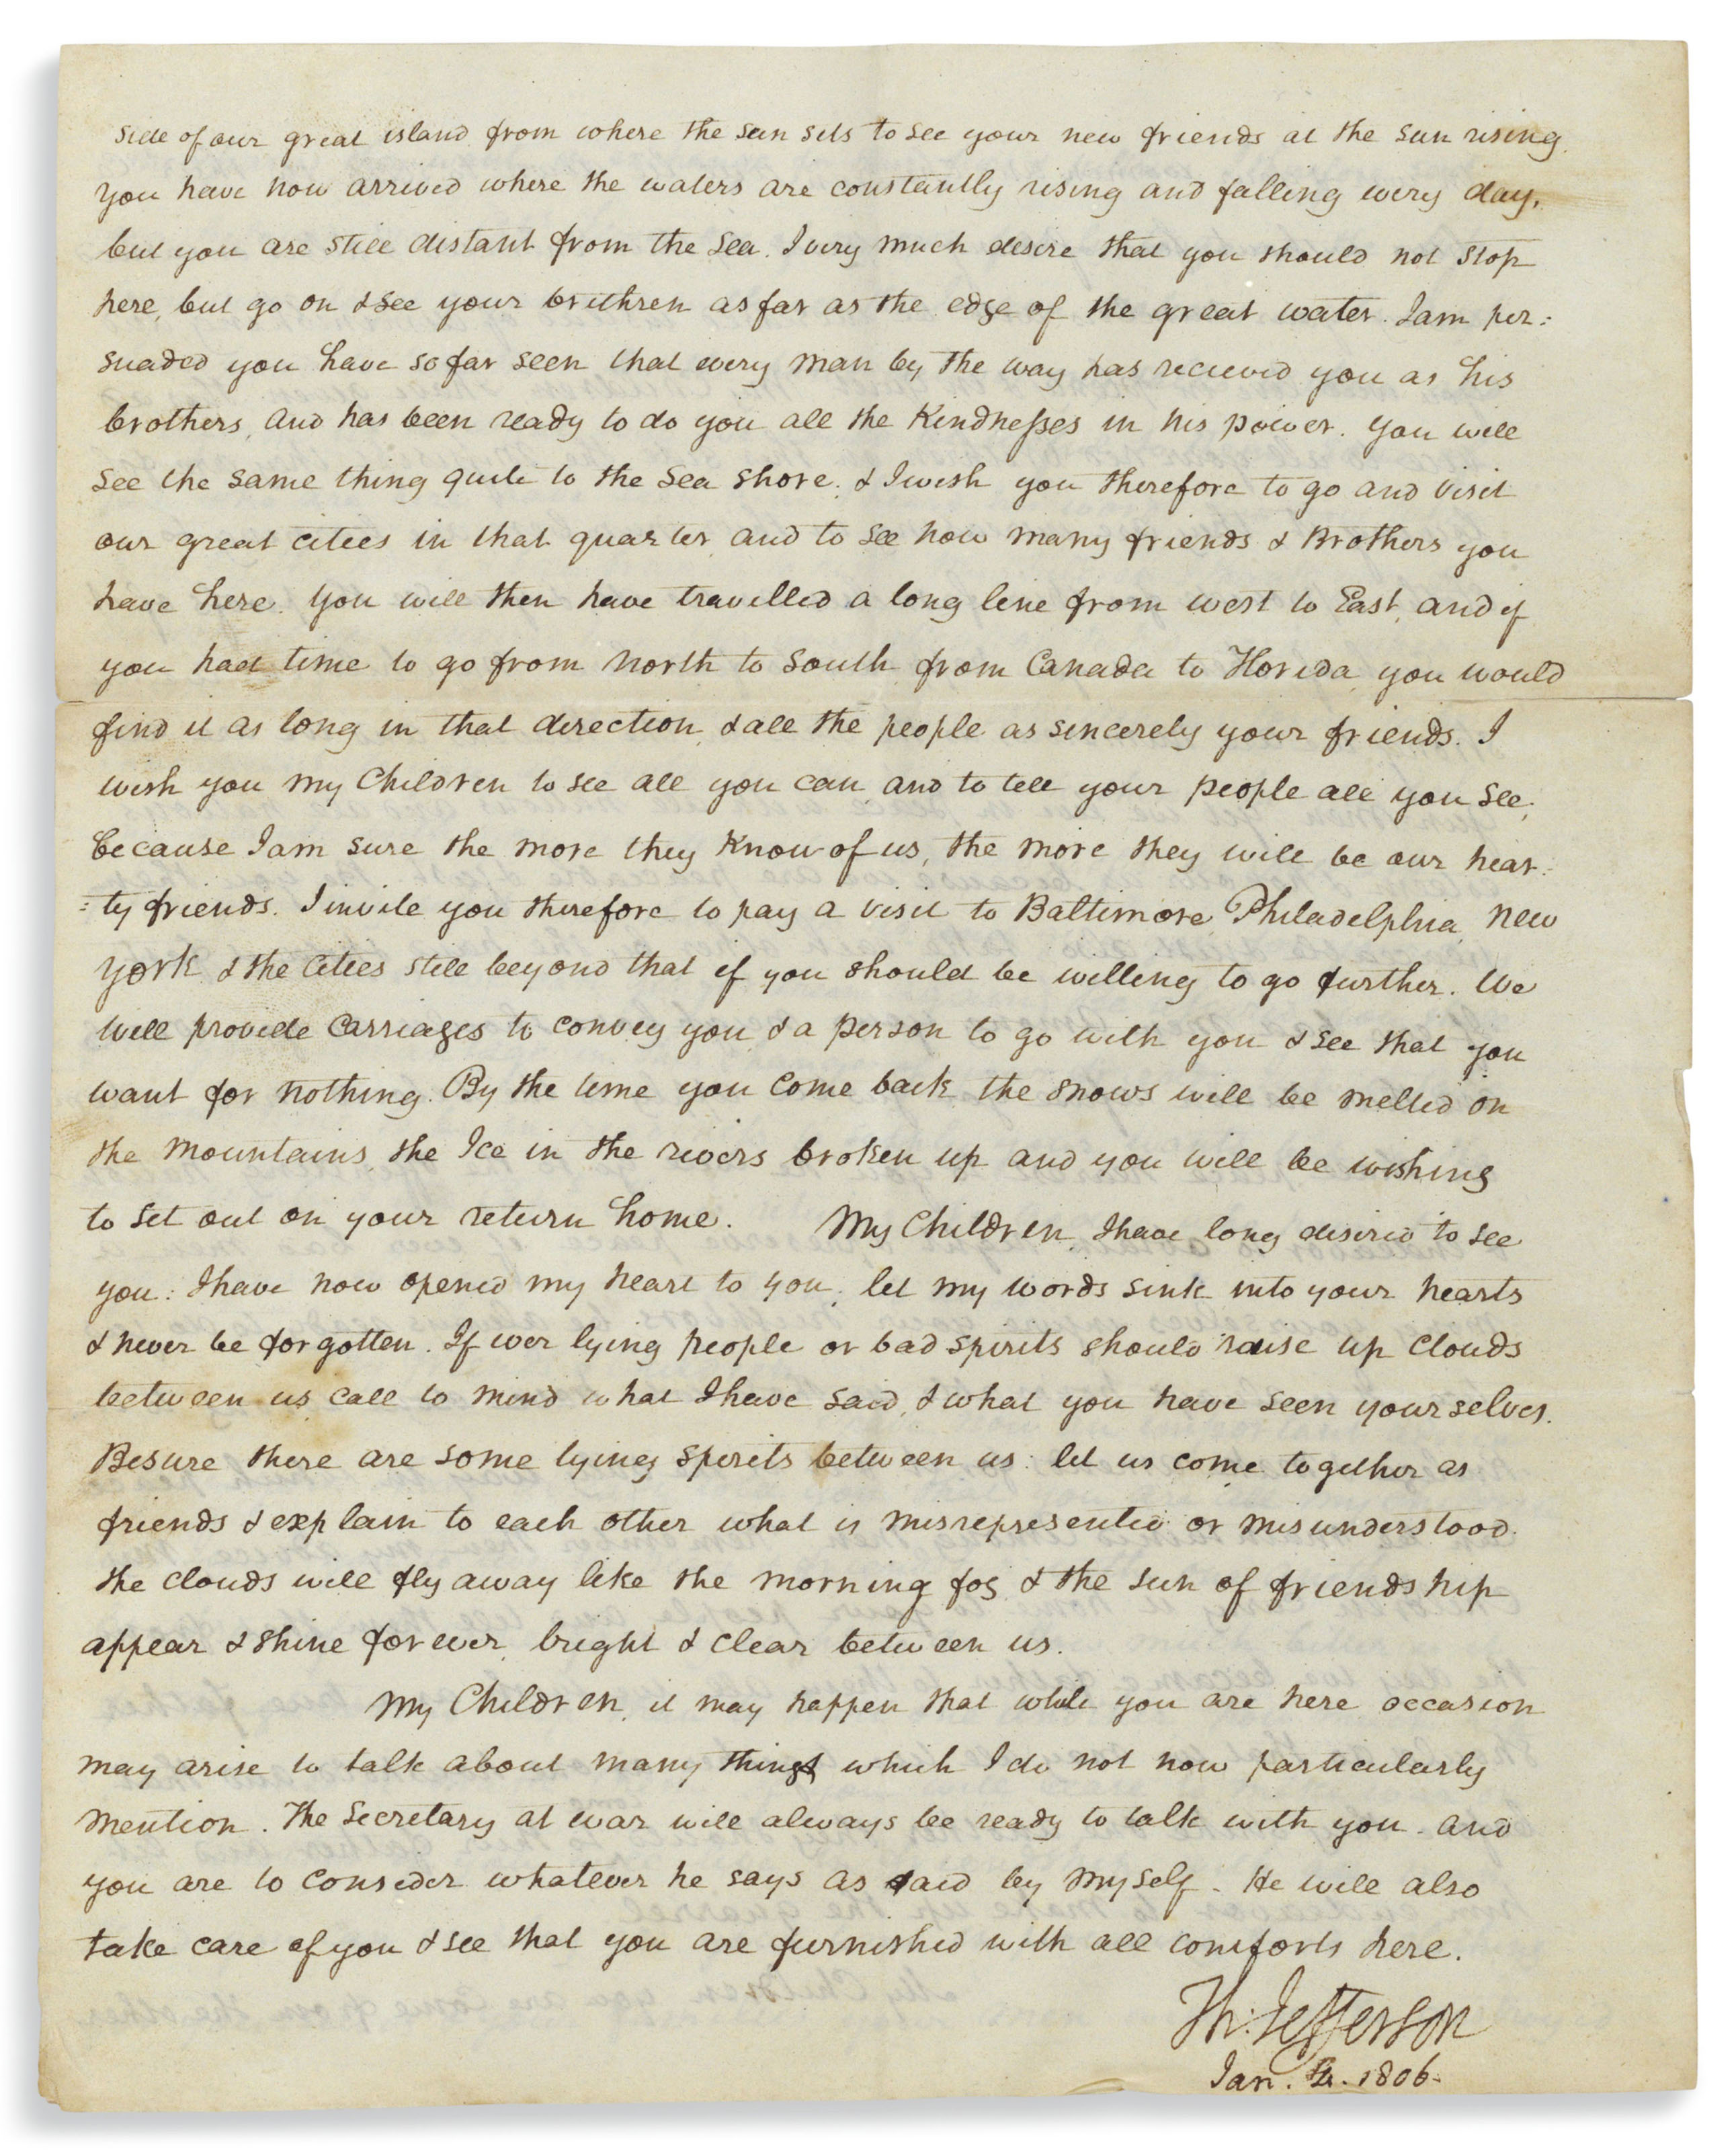 side of our great island from where the sun sets to see your new friends at the sun rising.
you have now arrived where the waters are constantly rising and falling every day,
but you are still distant from the sea. I very much desire that you should not stop
here, but go on & see your brethren as far as the edge of the great water. I am per:
suaded you have so far seen that every man by the way has recieved you as his
brothers, and has been ready to do you all the Kindnesses in his power. You will
see the same thing quite to the sea shore; & I wish you therefore to go and visit
our great cities in that quarter, and to see how many friends & Brothers you
have here. You will then have travelled a long line from west to East, and if
you had time to go from north to south, from Canada to Florida, you would
find it as long in that direction, & all the people as sincerely your friends. I
wish you my Children to see all you can, and to tell your people all you see;
because I am sure the more they Know of us, the more they will be our hear:
:ty friends. I invite you therefore to pay a visit to Baltimore, Philadelphia, New
York, & the Cities still beyond that if you should be willing to go further. We
will provide Carriages to convey you & a person to go with you & see that you
want for nothing. By the time you come back the snows will be melted on
the mountains, the Ice in the rivers broken up and you will be wishing
to set out on your return home. My Children, I have long desired to see
you: I have now opened my heart to you; let my words sink into your hearts
& never be forgotten. If ever lying people or bad spirits should raise up clouds
between us, call to mind what I have said, & what you have seen yourselves.
Be sure there are some lying spirits between us: let us come together as
friends & explain to each other what is misrepresented or misunderstood.
the clouds will fly away like the morning fog & the sun of friendship
appear & shine forever, bright & clear between us.
My Children, it may happen that while you are here occasion
may arise to talk about many things which I do not now particularly
mention. The Secretary at war will always be ready to talk with you. and
you are to consider whatever he says as said by myself. He will also
take care of you & see that you are furnished with all comforts here.
Th: Jefferson
Jan. 4. 1806.